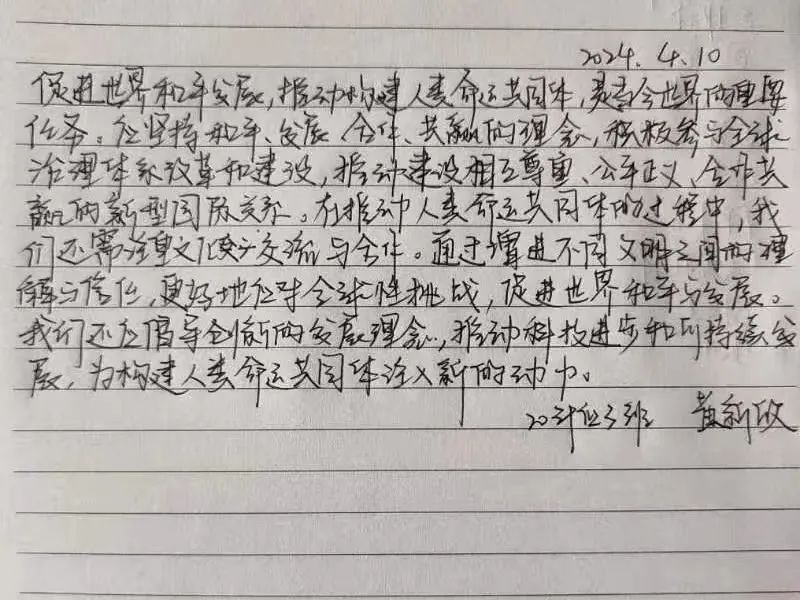 2024.4.10
促进世界和平发展,推动构建人类命运共同体,是当今世界的重要
任务。应坚持和平、发展、合作、共赢的理念,积极参与全球
治理体系改革和建设,推动建设相互尊重、公平正义、合作共
赢的新型国际关系。在推动人类命运共同体的过程中,我
们还需注重文化交流与合作。通过增进不同文明之间的理
解与信任,更好地应对全球性挑战,促进世界和平与发展。
我们还应倡导创新的发展理念,推动科技进步和可持续发
展,为构建人类命运共同体注入新的动力。
20计信3班 黄新政